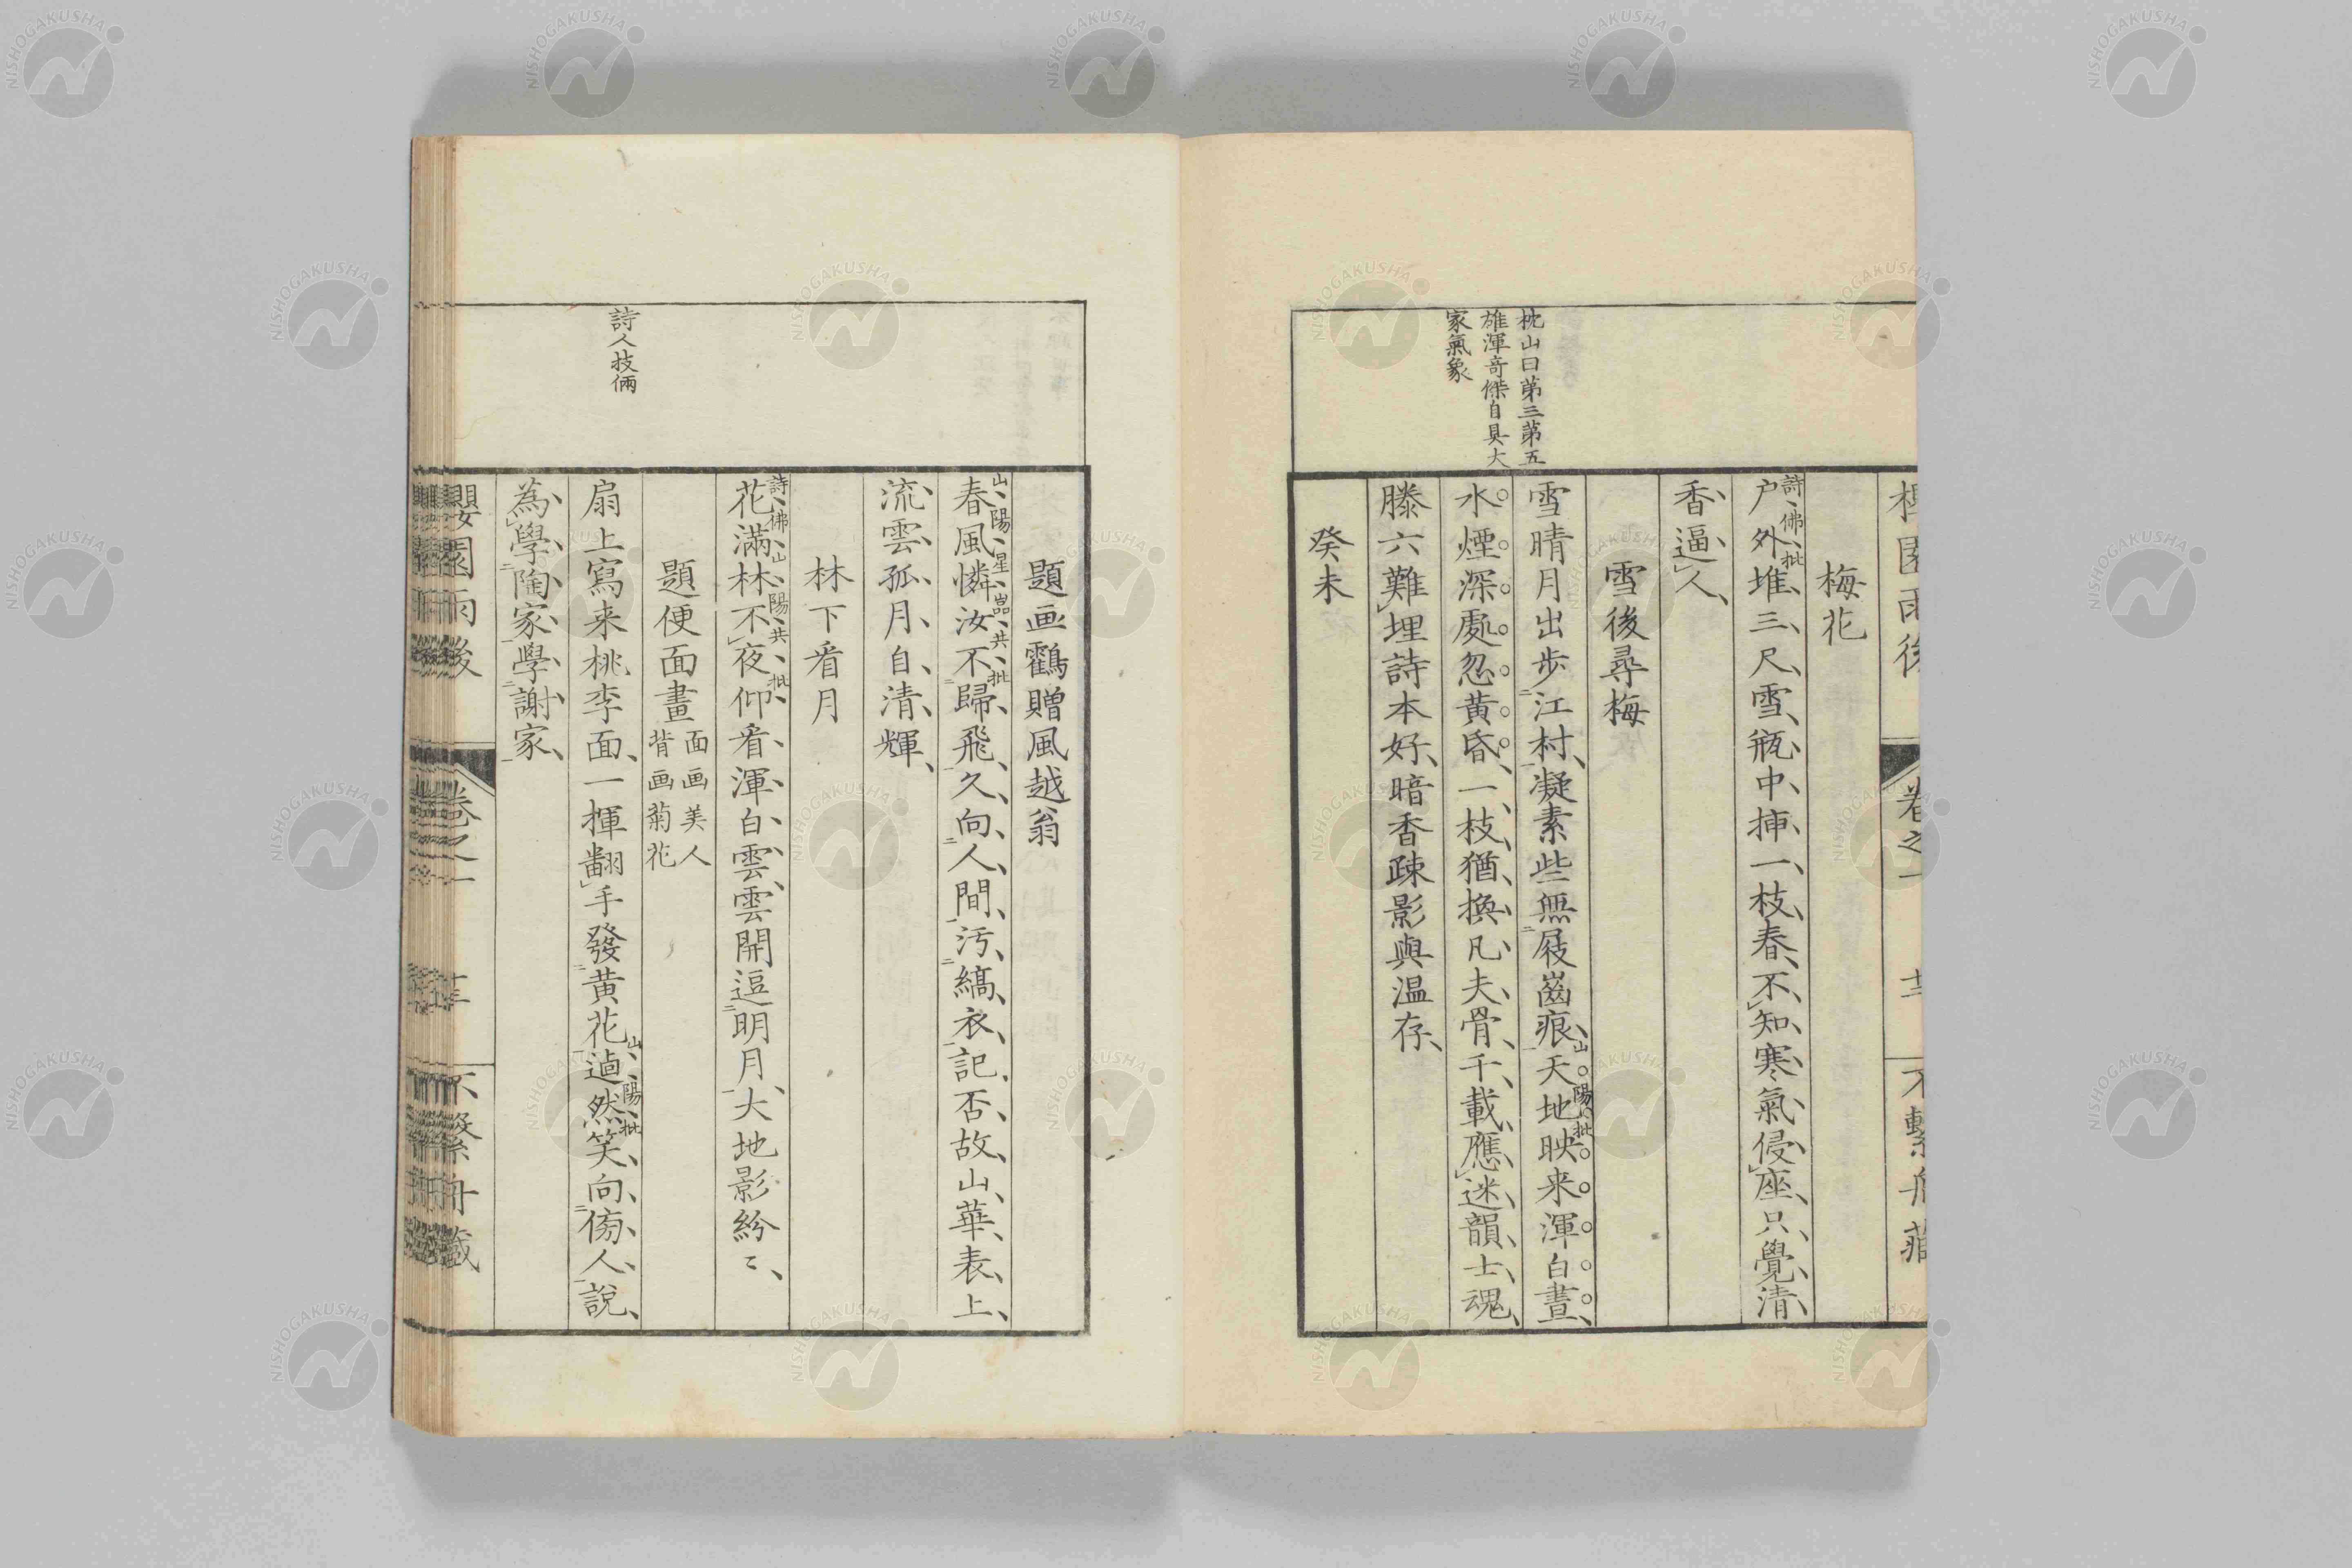 梅花
詩佛批
戸外堆三尺雪瓶中挿一枝春不知寒氣侵座只覺清
香逼人
雪後尋梅
枕山曰第三第五
雄渾奇傑自具大
家氣象
雪晴月出歩江村凝素些無屐齒痕天地映来渾白晝
山陽批
水煙深處忽黄昏一枝猶換凡夫骨千載應迷韻士魂
滕六難埋詩本好暗香疎影與温存
癸未
題画鸖贈風越翁
山陽星巖共批
春風憐汝不歸飛久向人間汚縞衣記否故山華表上
流雲孤月自清輝
林下看月
詩佛山陽共批
花滿林不夜仰看渾白雲雲開逗明月大地影紛〻
題便面畫 面画美人
背画菊花
詩人技倆
扇上寫来桃李面一揮翻手發黄花逌然笑向傍人説
山陽批
為學陶家學謝家
櫻園雨後
卷之一
NISHOGAKUSHA